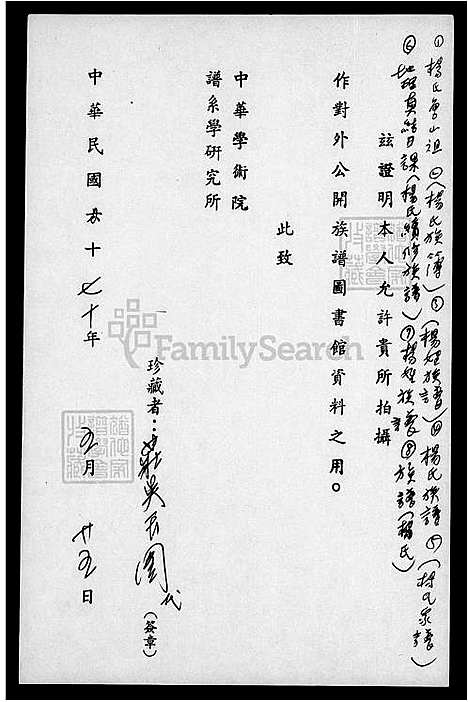 ①楊氏魯山祖②(楊氏族簿)③(楊姓族譜)④楊氏族譜⑤(楊氏家譜)
⑥地理真結日課(楊氏續修族譜)⑦楊姓族譜⑧族譜(楊氏)
茲證明本人允許貴所拍攝
作對外公開族譜圖書館資料之用。
此致
中華學術院
譜系學研究所
珍藏者：莊吳
代
(簽章)
中華民國 十七十年 五月 廿五日
FamilySearch